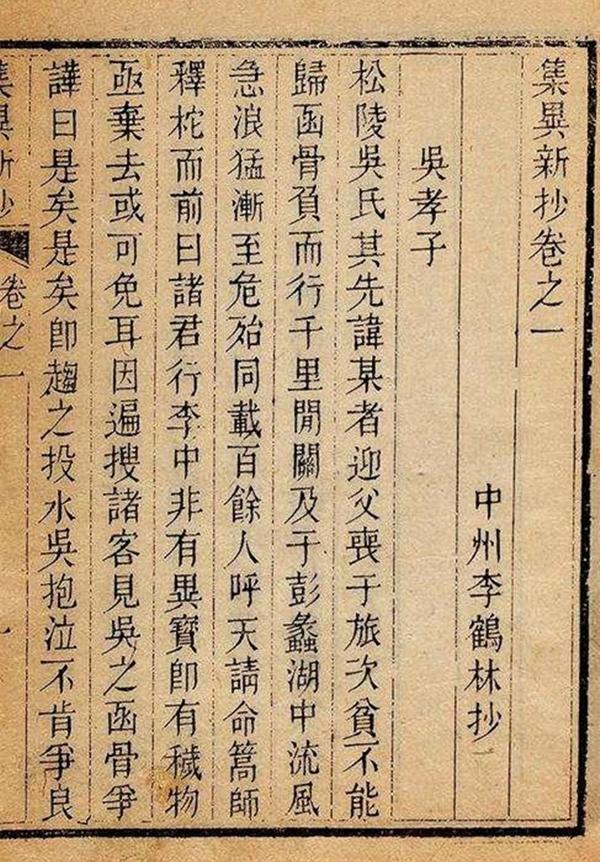 集異新抄卷之一
中州李鶴林抄
吳孝子
松陵吳氏其先諱某者迎父喪于旅次貧不能
歸函骨負而行千里閒關及于彭蠡湖中流風
急浪猛漸至危殆同載百餘人呼天請命篙師
釋柁而前曰諸君行李中非有異寳卽有穢物
亟棄去或可免耳因遍搜諸客見吳之函骨爭
譁曰是矣是矣卽趨之投水吳抱泣不肯爭良
集異新抄
卷之一